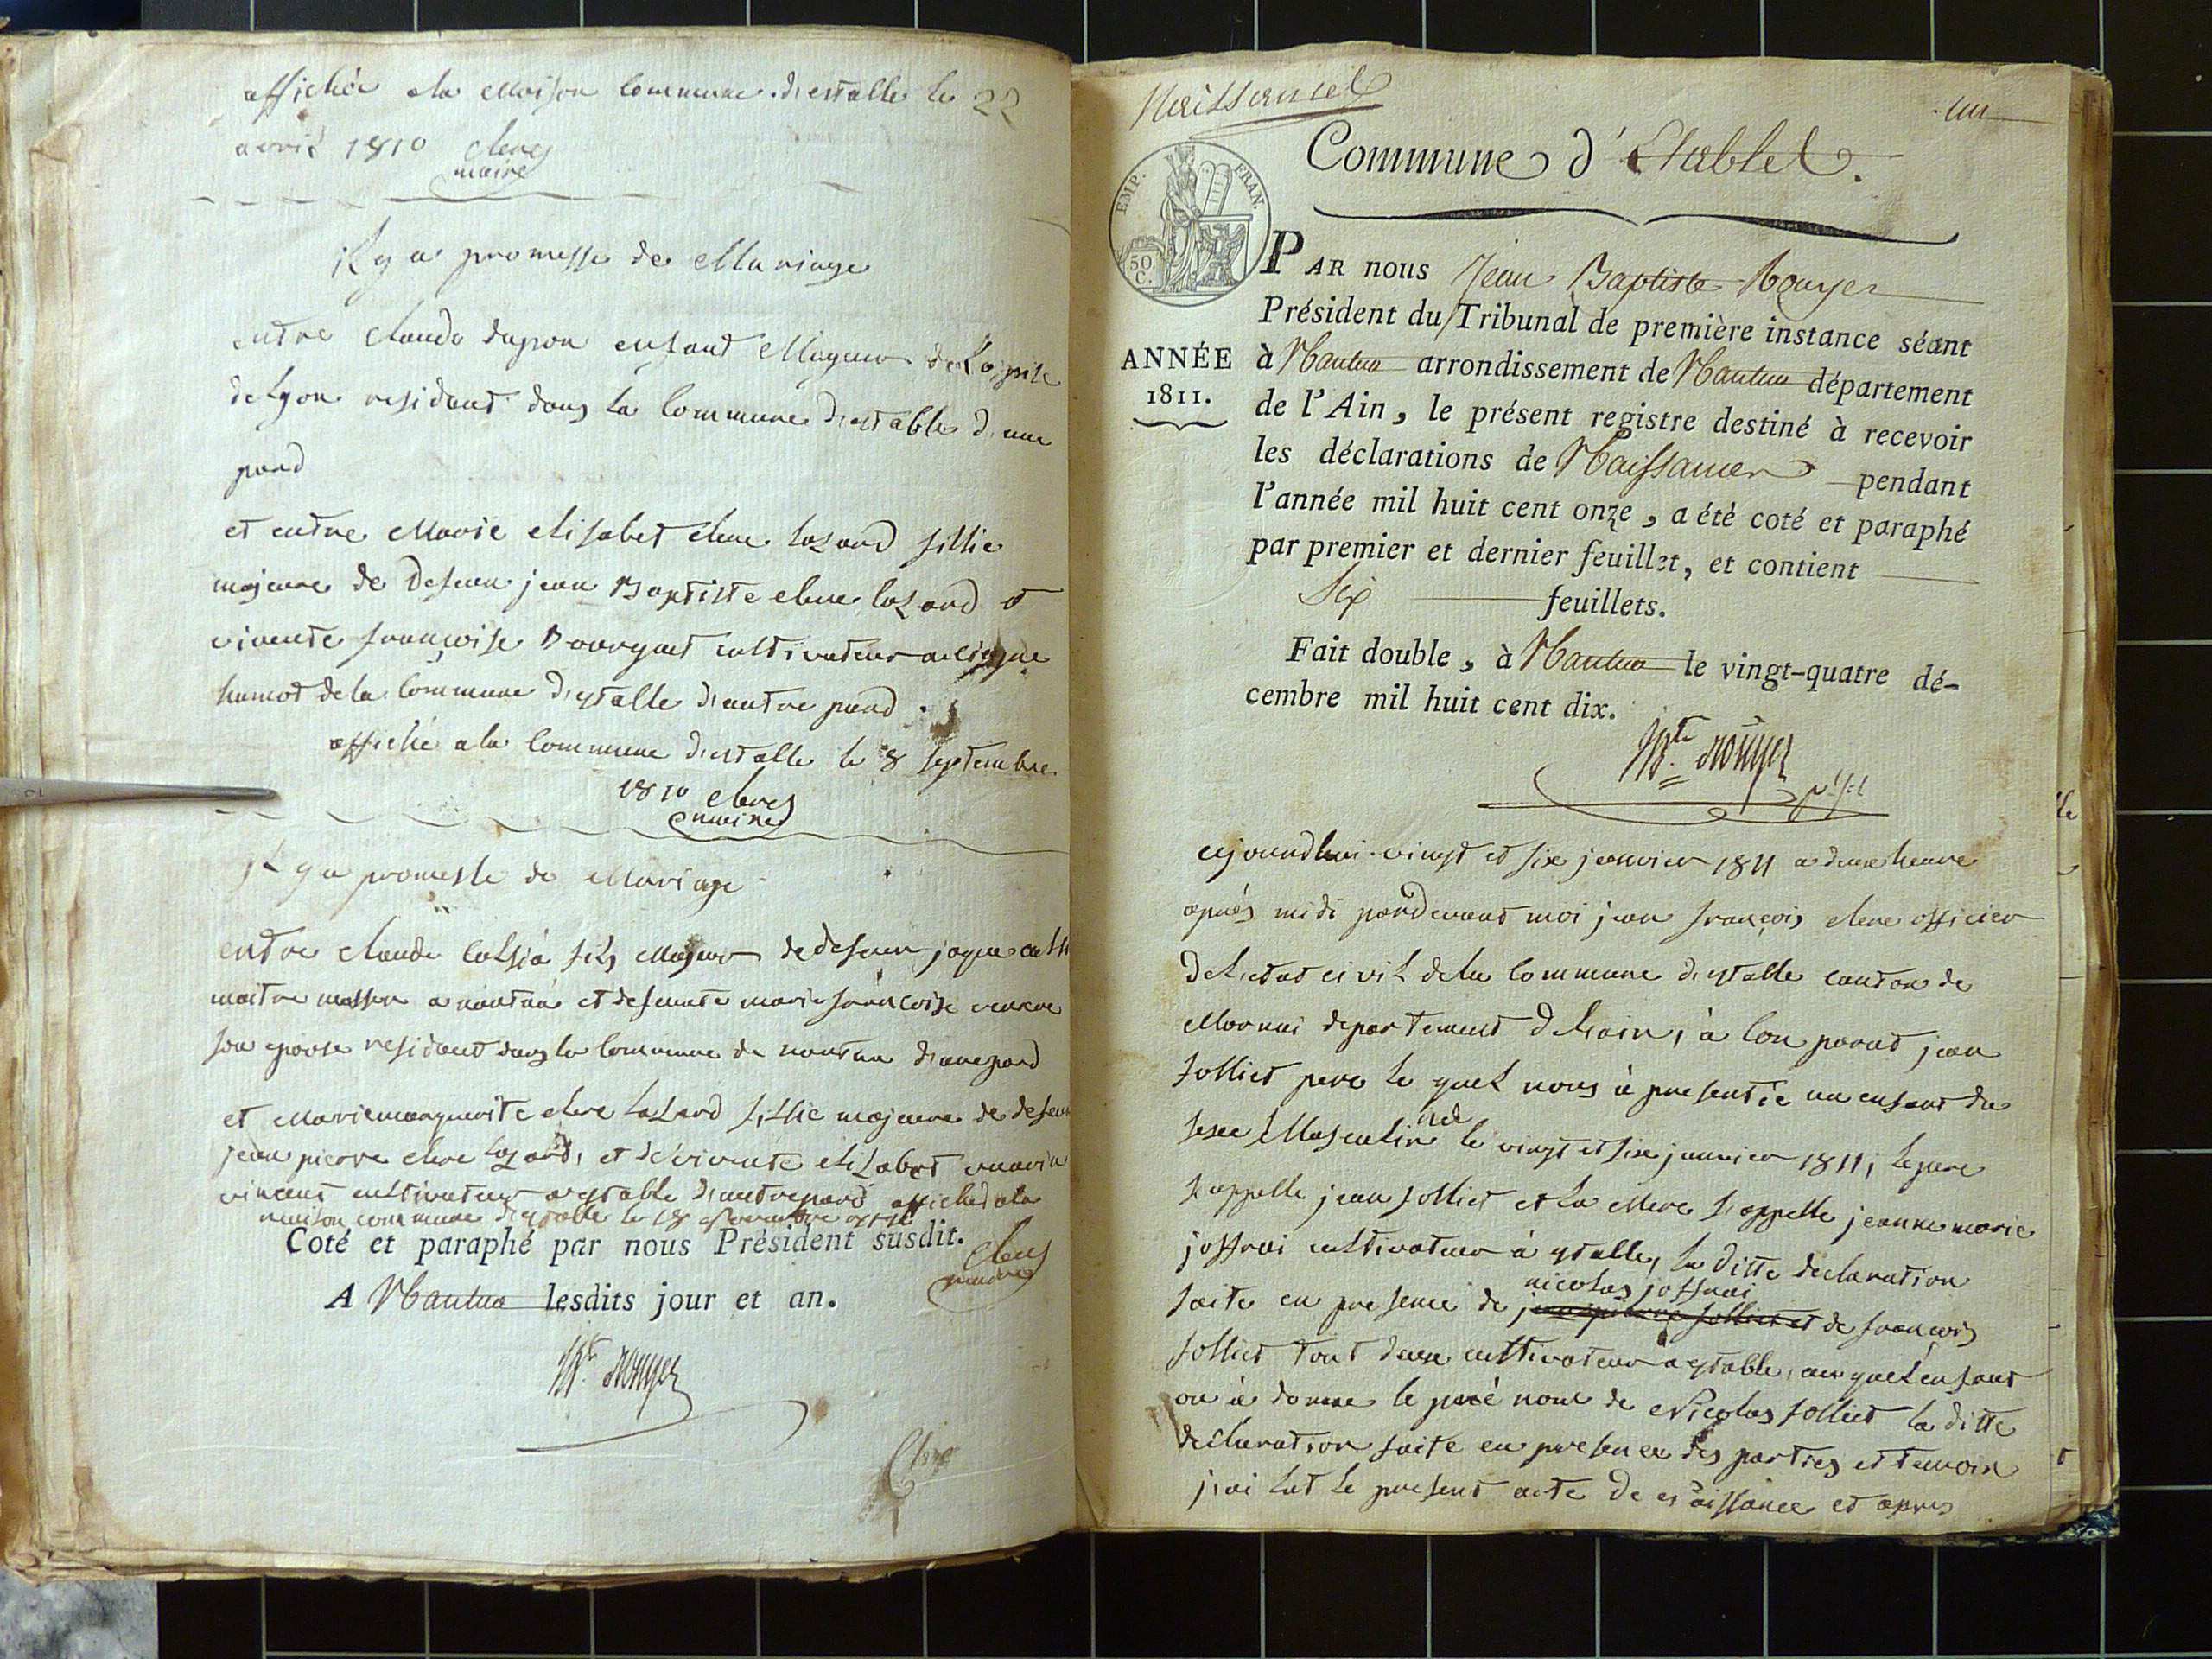 affichée a la Maison Commune d'estable le 22
avril 1810 clerc
maire
il y a promesse de Mariage
entre claude dupon enfant Mageur de
de Lyon residant dans la Commune d'estable d'une
pard
et entre Marie elisabet clerc lazard fillie
majeure de defeun jean Baptiste clerc lazard et
vivente françoise Bourguet cultivateur a
hamot de la Commune d'estable d'autre pard.
affiché a la Commune d'estable le 8 septembre
1810 clerc
maire
il y a promesse de Mariage
entre claude fils Majeur de defeun jaque
maitre masson a nantua et defeunte marie françoise
son epouse residant dans la Commune de nantua d'une pard
et Marie marguerite clerc lazard fillie majeure de defeun
jean pierre clerc lazard, et de vivente elizabet
vincent cultivateur a estable d'autre pard affiched a la
maison commune d'estable le 18 1810
Coté et paraphé par nous Président susdit.
clerc
maire
A Nantua lesdits jour et an.
Bte. Rouyer
Clerc
Naissances
un
Commune d'Etables.
EMP. FRAN.
50
C.
ANNÉE
1811.
PAR nous Jean Baptiste Rouyer
Président du Tribunal de première instance séant
à Nantua arrondissement de Nantua département
de l'Ain, le présent registre destiné à recevoir
les déclarations de Naissances pendant
l'année mil huit cent onze, a été coté et paraphé
par premier et dernier feuillet, et contient
Six feuillets.
Fait double, à Nantua le vingt-quatre dé-
cembre mil huit cent dix.
Bte. Rouyer
ajourd'hui vingt et six jeanvier 1811 a deux heure
après midi pardevant moi jean françois clerc officier
de l'etat civil de la Commune d'estable canton de
Mornai departement de l'ain, à Con parut jean
jolliet pere le quel nous à presentée un enfant du
sexe Masculin né le vingt et six janvier 1811, le pere
s'appelle jean jolliet et la Mere s'appelle jeanne marie
joffrai cultivateur à estable, la ditte declaration
nicolas joffrai
faite en presence de et de françois
jolliet tout deux cultivateur a estable, au quel enfant
on à donne le pré nom de Nicolas jolliet la ditte
declaration faite en presence des parties et temoin
j'ai lut le present acte de naissance et apres